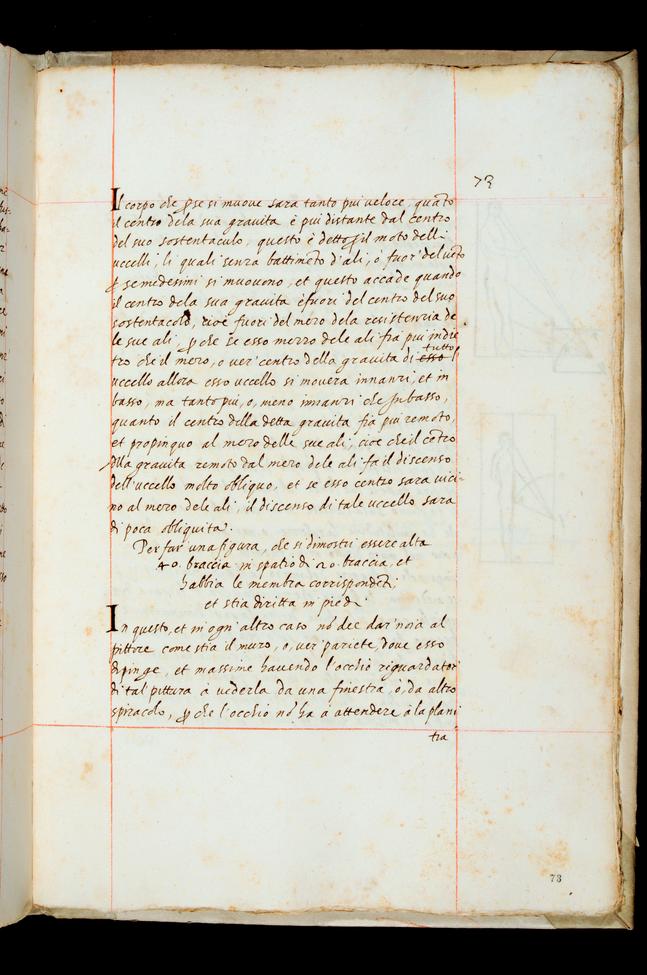 73
Il corpo che p se si muove sara tanto piu veloce, quãto
il centro dela sua gravita è piu distante dal centro
del suo sostentaculo, questo è detto p il moto delli
uccelli li quali senza battimẽto d'ali, ò fuor' del vẽto
p se medesimi si muovono, et questo accade quando
il centro dela sua gravita è fuori del centro del suo
sostentacolo, cioe fuori del mezo dela resistentia de
le sue ali, p che se esso mezzo dele ali fia piu indie
tro che il mezo, o ver' centro della gravita di esso tutto l'
uccello allora esso uccello si movera innanzi, et in
basso, ma tanto piu, o, meno innanzi che in basso,
quanto il centro della detta gravita fia piu remoto,
et propinquo al mezo delle sue ali, cioe che il cẽtro
dlla gravita remoto dal mezo dele ali fa il discenso
dell'uccello molto obliquo, et se esso centro sara vici-
no al mezo dele ali, il discenso di tale uccello sara
di poca obliquita.
Per far' una figura, che si dimostri essere alta
40. braccia in spatio di 20. braccia, et
habbia le membra corrispondẽti,
et stia diritta in piedi.
In questo, et in ogn' altro caso nõ dee dar' noia al
pittore come stia il muro, o, ver' pariete, dove esso
dipinge, et massime havendo l'occhio riguardator'
di tal pittura à vederla da una finestra, ò, da altro
spiracolo, p che l'occhio nõ ha à attendere à la plani
tia
73